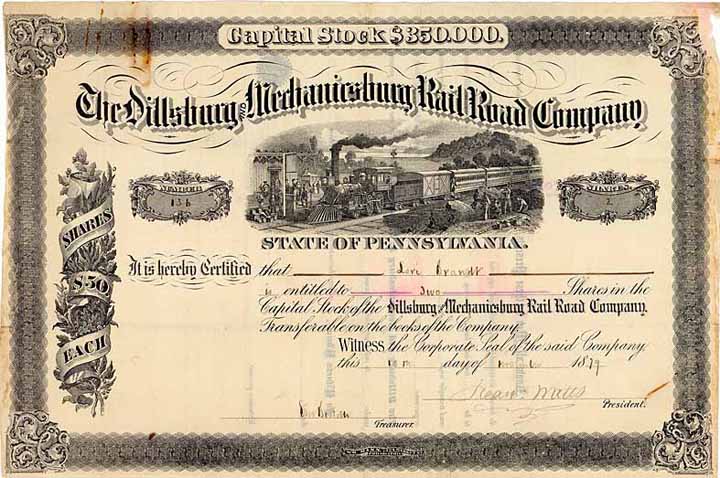 Capital Stock $350.000.
The Dillsburg AND Mechanicsburg Rail Road Company
NUMBER
136
SHARES
2
SHARES
$50
EACH
STATE OF PENNSYLVANIA.
It is hereby Certified that Levi Brandt
is entitled to Two Shares in the
Capital Stock of the Dillsburg and Mechanicsburg Rail Road Company.
Transferable on the books of the Company.
Witness the Corporate Seal of the said Company
this day of 1879
President.
Treasurer.